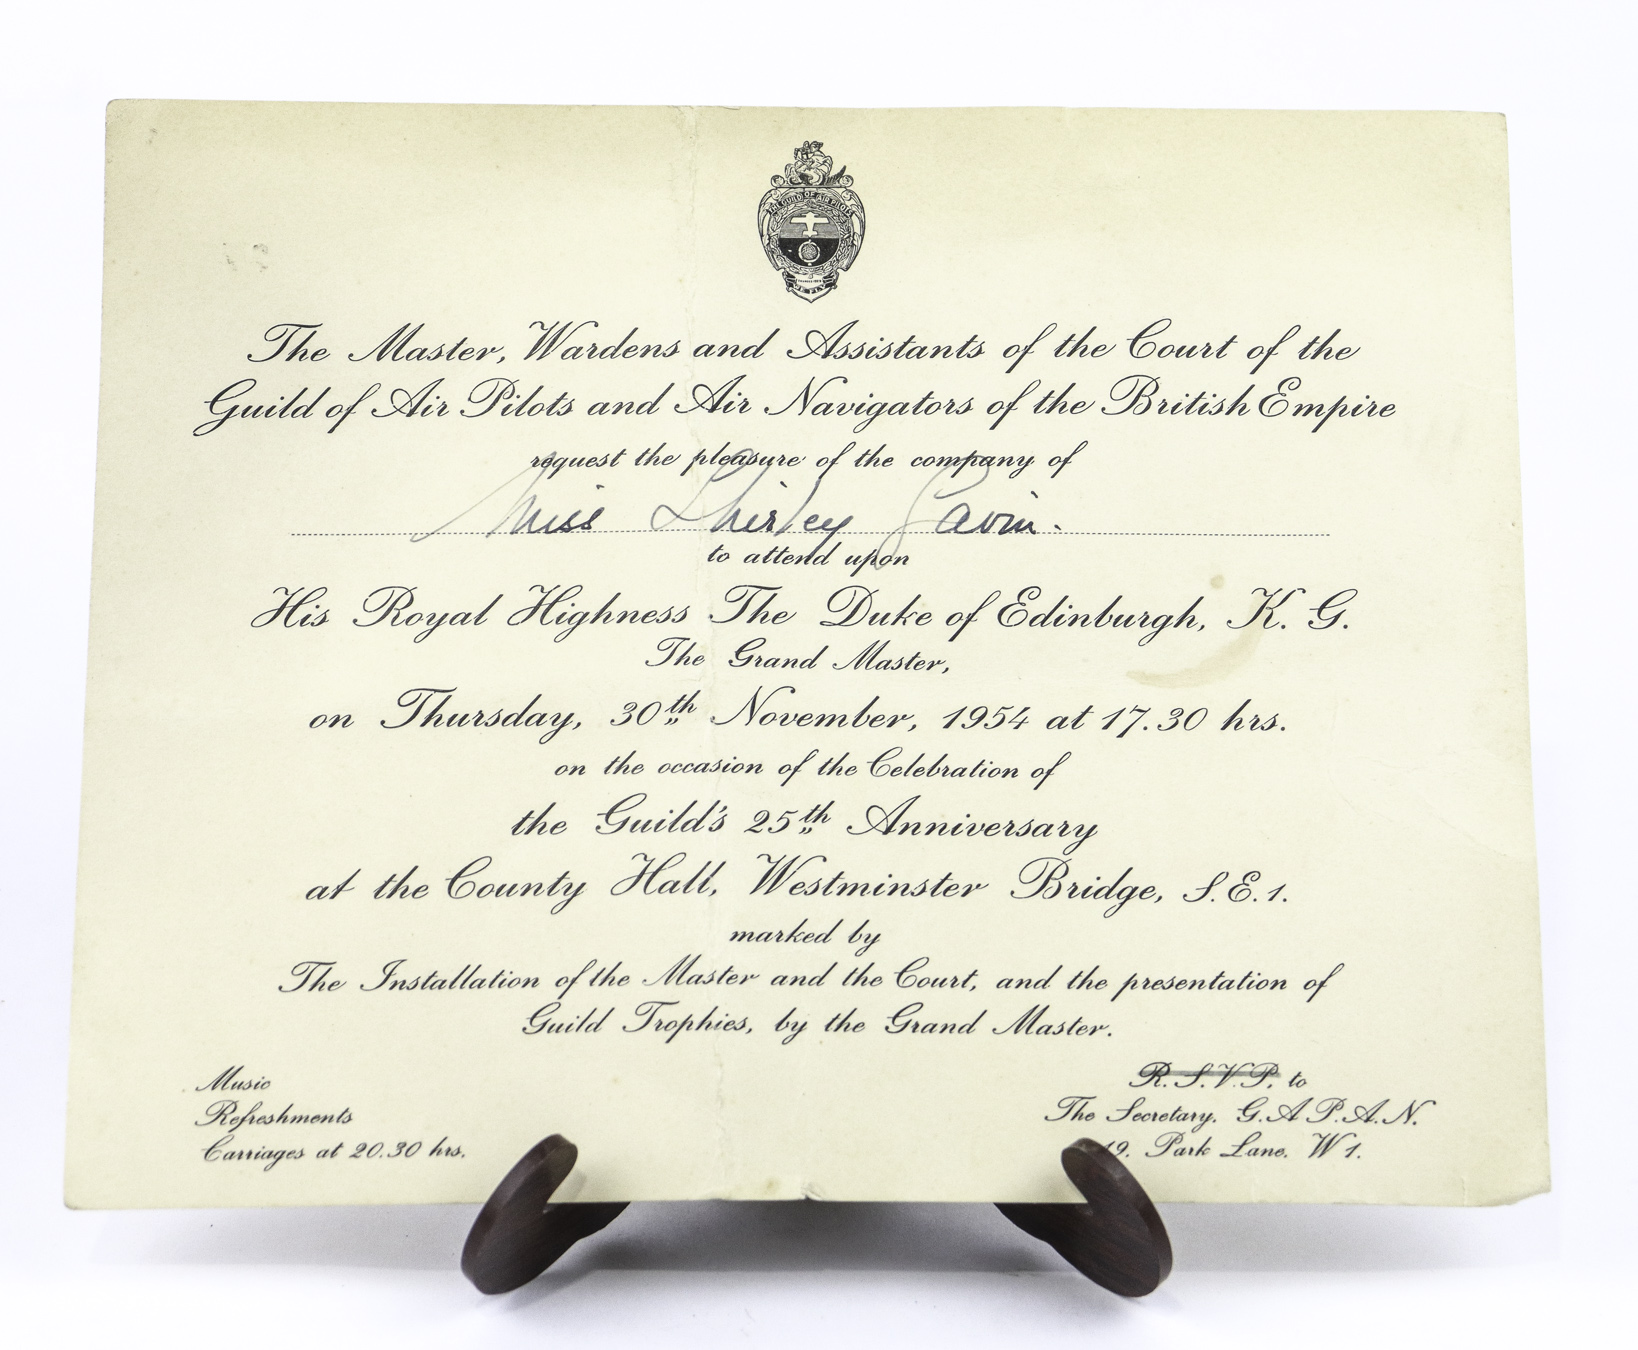 THE GUILD OF AIR PILOTS
WE FLY
The Master, Wardens and Assistants of the Court of the
Guild of Air Pilots and Air Navigators of the British Empire
request the pleasure of the company of
Miss Shirley Cavin.
to attend upon
His Royal Highness The Duke of Edinburgh, K. G.
The Grand Master,
on Thursday, 30th November, 1954 at 17.30 hrs.
on the occasion of the Celebration of
the Guild's 25th Anniversary
at the County Hall, Westminster Bridge, S.E.1.
marked by
The Installation of the Master and the Court, and the presentation of
Guild Trophies, by the Grand Master.
Music
Refreshments
Carriages at 20.30 hrs.
R.S.V.P. to
The Secretary, G.A.P.A.N.
19. Park Lane. W 1.